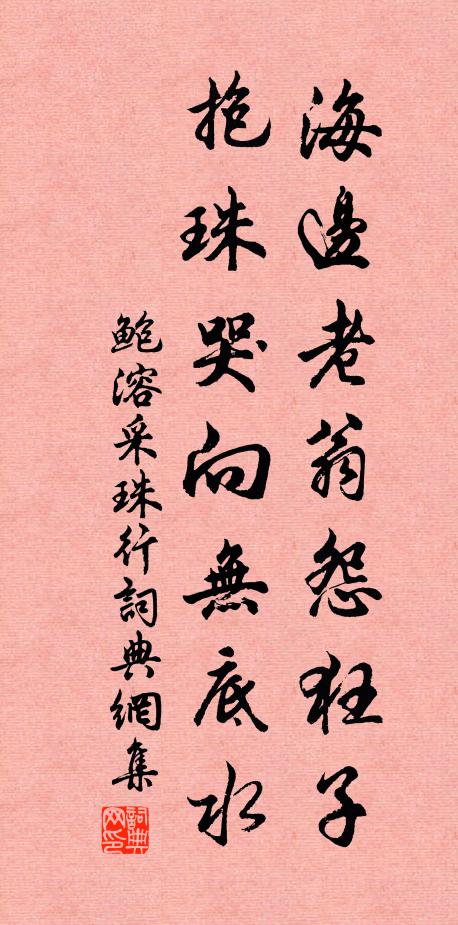 海邊老翁怨狂子
抱珠哭向無底水
鮑溶采珠行詞典網集
詞典网印